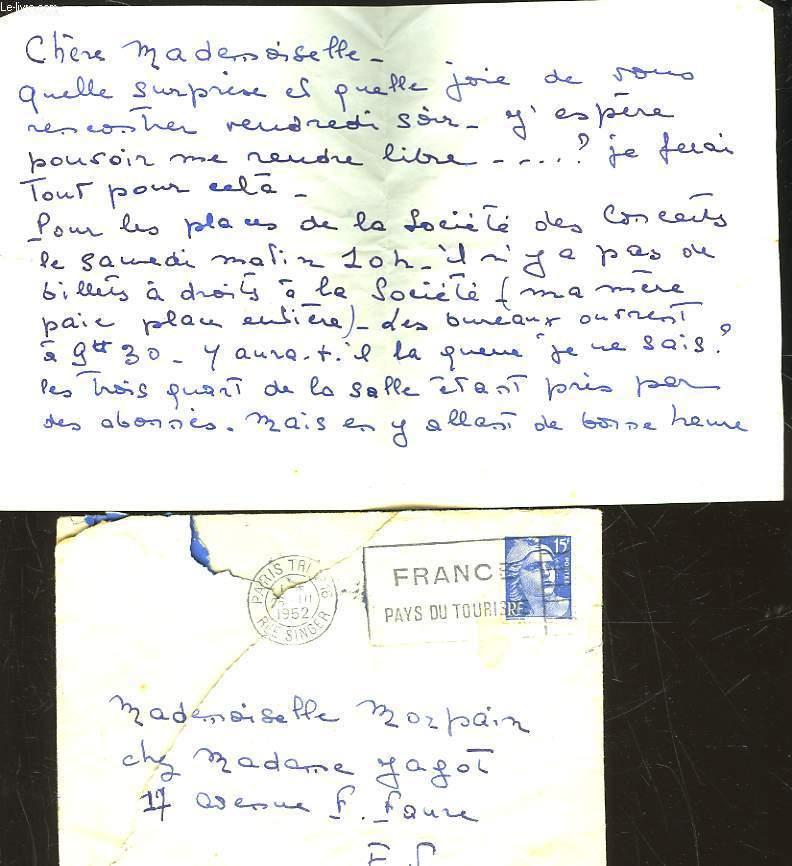 Le-livre.com
Chère Mademoiselle -
quelle surprise et quelle joie de vous
rencontrer vendredi soir - j'espère
pouvoir me rendre libre - ....? je ferai
Tout pour cela -
Pour les places de la Société des Concerts
le samedi matin 10h - il n'y a pas de
billets à droits à la Société (ma mère
paie place entière) - Les bureaux ouvrent
à 9H 30 - Y aura-t-il la queue je ne sais?
les trois quart de la salle étant pris par
des abonnés. Mais en y allant de bonne heure
PARIS TRI
III
1952
RUE SINGER
FRANCE
PAYS DU TOURISME
15F
Mademoiselle Morpain
chez Madame Jagot
17 avenue F. Faure